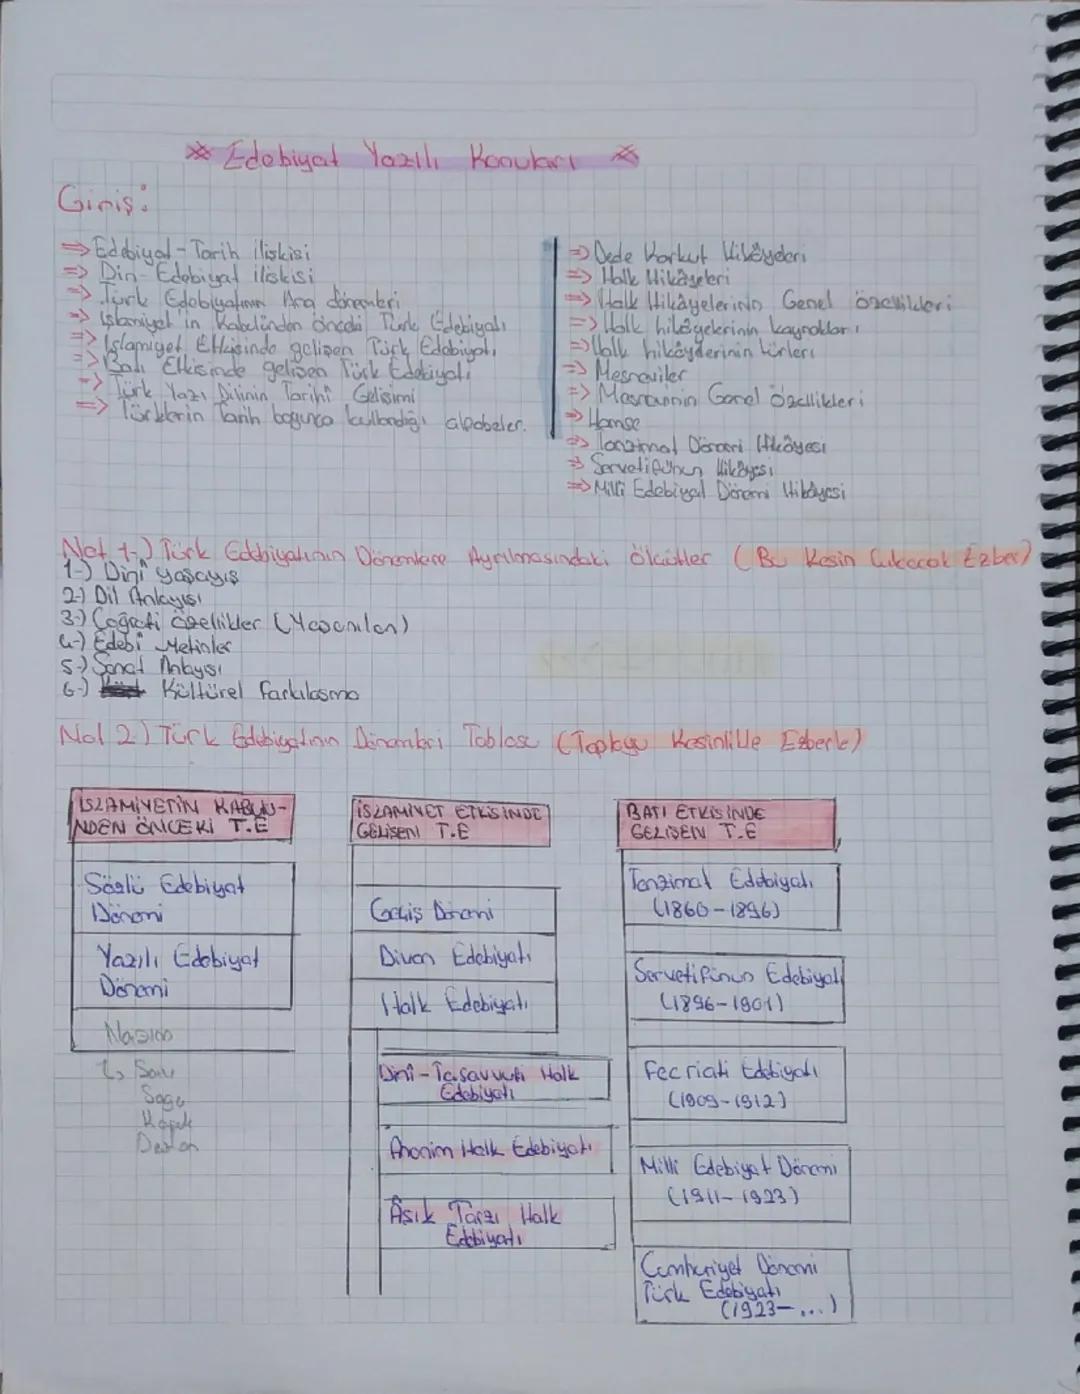 Edebiyat Yazılı Konuları
Giriş:
⇒ Edebiyat - Tarih ilişkisi
⇒ Din - Edebiyat ilişkisi
⇒ Türk Edebiyatının Ana dönemleri
⇒ İslamiyet'in Kabulünden önceki Türk Edebiyatı
⇒ İslamiyet Etkisinde gelişen Türk Edebiyatı
⇒ Batı Etkisinde gelişen Türk Edebiyatı
⇒ Türk Yazı Dilinin Tarihî Gelişimi
⇒ Türklerin Tarih boyunca kullandığı alfabeler.
⇒ Dede Korkut Hikâyeleri
⇒ Halk Hikâyeleri
⇒ Halk Hikâyelerinin Genel özellikleri
⇒ Halk hikâyelerinin kaynakları
⇒ Halk hikâyelerinin türleri
⇒ Mesneviler
⇒ Mesnevinin Genel özellikleri
⇒ Hamse
⇒ Tanzimat Dönemi Hikâyesi
⇒ Servetifünun Hikâyesi
⇒ Milli Edebiyat Dönemi Hikâyesi
Not 1-) Türk Edebiyatının Dönemlere Ayrılmasındaki ölçütler (Bu Kesin Çıkacak Ezber)
1-) Dinî yaşayış
2-) Dil Anlayışı
3-) Coğrafi özellikler (Yaşanılan)
4-) Edebî Metinler
5-) Sanat Anlayışı
6-) Kültürel Farklılaşma
Not 2-) Türk Edebiyatının Dönemleri Tablosu (Tabloyu Kesinlikle Ezberle)
İSLAMİYETİN KABULÜ-
NDEN ÖNCEKİ T.E
Sözlü Edebiyat
Dönemi
Yazılı Edebiyat
Dönemi
Nazım
↳ Sav
Sagu
Koşuk
Destan
İSLAMİYET ETKİSİNDE
GELİŞEN T.E
Geçiş Dönemi
Divan Edebiyatı
Halk Edebiyatı
Dinî - Tasavvufi Halk
Edebiyatı
Anonim Halk Edebiyatı
Âşık Tarzı Halk
Edebiyatı
BATI ETKİSİNDE
GELİŞEN T.E
Tanzimat Edebiyatı
(1860-1896)
Servetifünun Edebiyatı
(1896-1901)
Fecriati Edebiyatı
(1909-1912)
Milli Edebiyat Dönemi
(1911-1923)
Cumhuriyet Dönemi
Türk Edebiyatı
(1923-...)